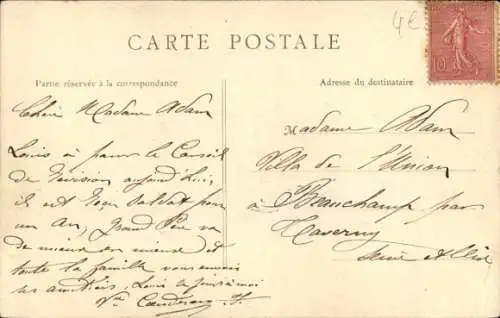 4€
CARTE POSTALE
Partie réservée à la correspondance
Adresse du destinataire
10
Chère Madame Adam
Louis a passé le Conseil
de Révision aujourd'hui,
il est reçu soldat pour
un an, Grand Père va
de mieux en mieux et
toute la famille vous envoie
ses amitiés, Louis
Vve
Madame Adam
Villa de l'Union
à Beauchamp par
Taverny
Seine et Oise